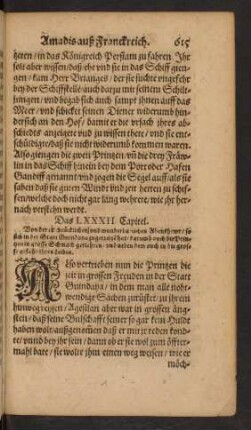 Amadis auß Franckreich. 615
heten / in das Königreich Persiam zu fahren. Ihr
solt aber wissen / daß ehe und sie in das Schiff gien-
gen / kam Herr Brianges / der sie suchte ungefehr
bey der Schiffstelle / auch darzu mit seinem Schilt-
jungen / und begab sich auch sampt ihnen auff das
Meer / und schicket seinen Diener widerumb hin-
dersich an den Hof / damit er die ursach ihres ab-
schiedts anzeigete und zu wissen thete / und sie ent-
schüldigte / daß sie nicht widerumb kommen waren.
Also giengen die zween Printzen / und die drey Fräw-
lin in das Schiff hinein bey dem Port oder Hafen
Gandiff genannt und zogen die Segel auff / als sie
sahen daß sie guten Windt und zeit hetten zu schif-
fen / welche doch nicht gar lang wehrete / wie ihr her-
nach verstehn werdt.
Das LXXXII Capitel.
Von der
so
in der Statt Guindaya
in grosse Schmach
Also vertrieben nun die Printzen die
zeit in grossen Freuden in der Statt
Guindaya / in dem man alle noht-
wendige Sachen zurüstet / zu ihrem
hinweg reysen / Agesilan aber war in grossen ängs-
ten / daß seine Bulschafft seiner so gar kein Huldt
haben wolt / außgenommen daß er mit jr reden kond-
te / und bey ihr sein / dann ob er sie wol zum öffter-
mahl bate / sie wolte jhm einen weg weisen / wie er
möch-